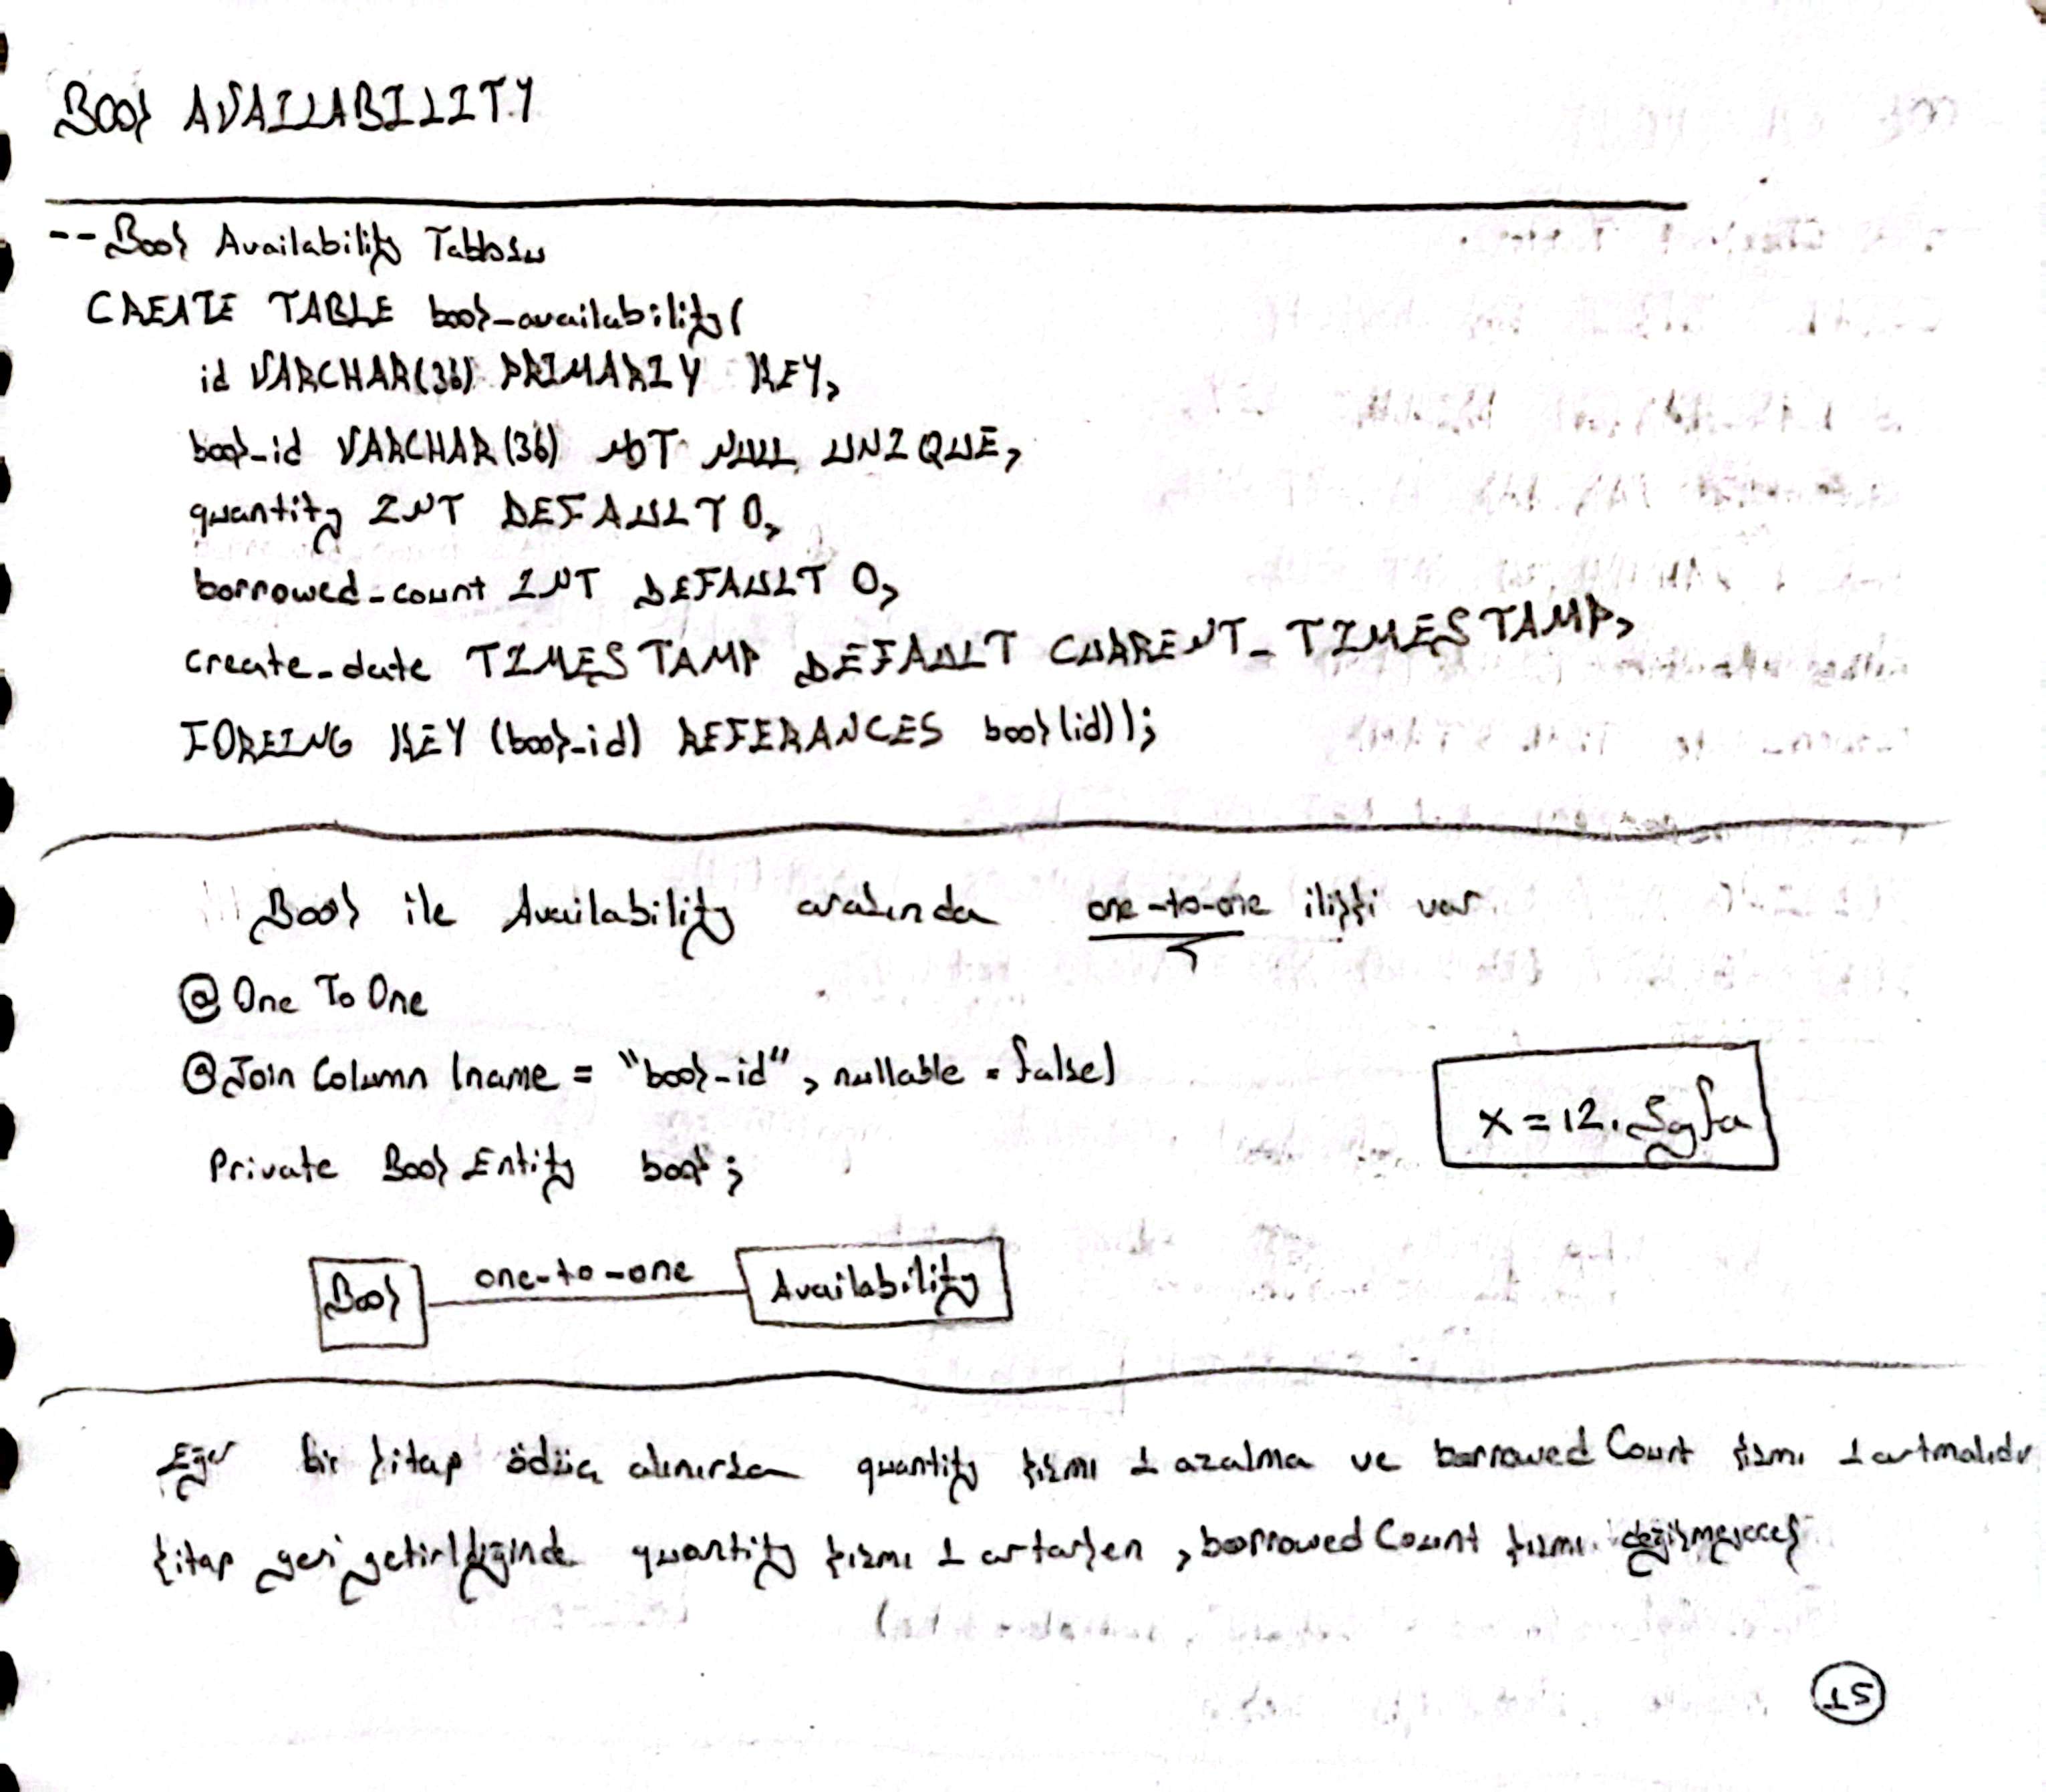 Book AVAILABILITY
-- Book Availability Tablosu
CREATE TABLE book_availability(
id VARCHAR(36) PRIMARIY KEY,
book_id VARCHAR(36) NOT NULL UNIQUE,
quantity INT DEFAULT 0,
borrowed_count INT DEFAULT 0,
create_date TIMESTAMP DEFAULT CURRENT_TIMESTAMP,
FOREING KEY (book_id) REFERANCES book(id));
Book ile Availability arasında one-to-one ilişki var
@ One To One
@ Join Column (name = "book-id", nullable = false)
Private Book Entity book;
x = 12. Sayfa
Book one-to-one Availability
Eğer bir kitap ödünç alınırsa quantity kısmı 1 azalma ve borrowed Count kısmı 1 artmalıdır
kitap geri getirldiğinde quantity kısmı 1 artarken, borrowed Count kısmı değişmeyecek
15